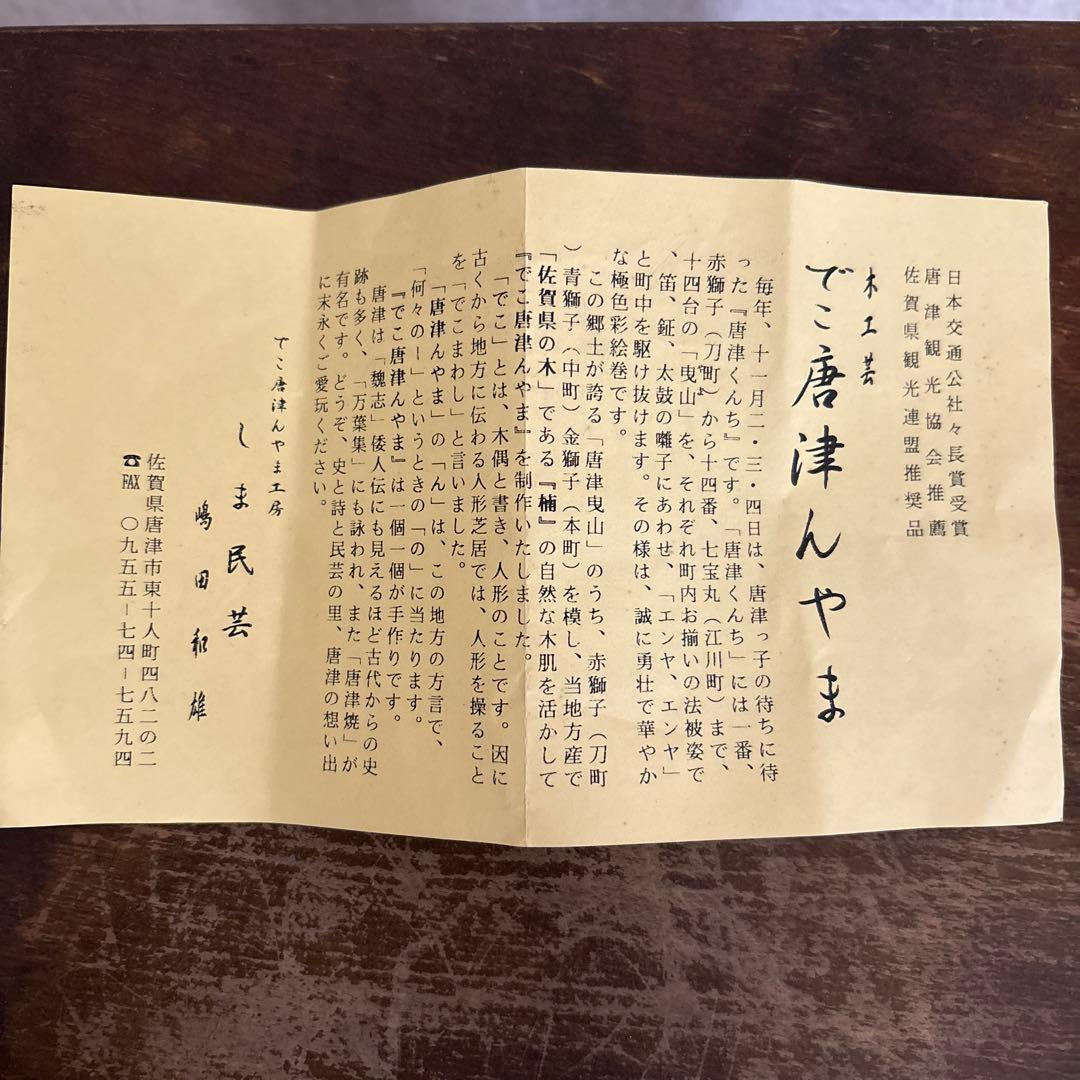 日本交通公社々長賞受賞
唐津観光協会推薦
佐賀県観光連盟推奨品
木工芸
でこ唐津んやま
毎年、十一月二・三・四日は、唐津っ子の待ちに待
った『唐津くんち』です。「唐津くんち」には一番、
赤獅子（刀町）から十四番、七宝丸（江川町）まで、
十四台の「曳山」を、それぞれ町内お揃いの法被姿で
、笛、鉦、太鼓の囃子にあわせ、「エンヤ、エンヤ」
と町中を駆け抜けます。その様は、誠に勇壮で華やか
な極色彩絵巻です。
この郷土が誇る「唐津曳山」のうち、赤獅子（刀町
）青獅子（中町）金獅子（本町）を模し、当地方産で
「佐賀県の木」である『楠』の自然な木肌を活かして
『でこ唐津んやま』を制作いたしました。
「でこ」とは、木偶と書き、人形のことです。因に
古くから地方に伝わる人形芝居では、人形を操ること
を「でこまわし」と言いました。
「唐津んやま」の「ん」は、この地方の方言で、
「何々のー」というときの「の」に当たります。
『でこ唐津んやま』は一個一個が手作りです。
唐津は「魏志」倭人伝にも見えるほど古代からの史
跡も多く、「万葉集」にも詠われ、また「唐津焼」が
有名です。どうぞ、史と詩と民芸の里、唐津の想い出
に末永くご愛玩ください。
でこ唐津んやま工房
しま民芸
嶋田和雄
佐賀県唐津市東十人町四八二の二
☎FAX 〇九五五ー七四ー七五九四